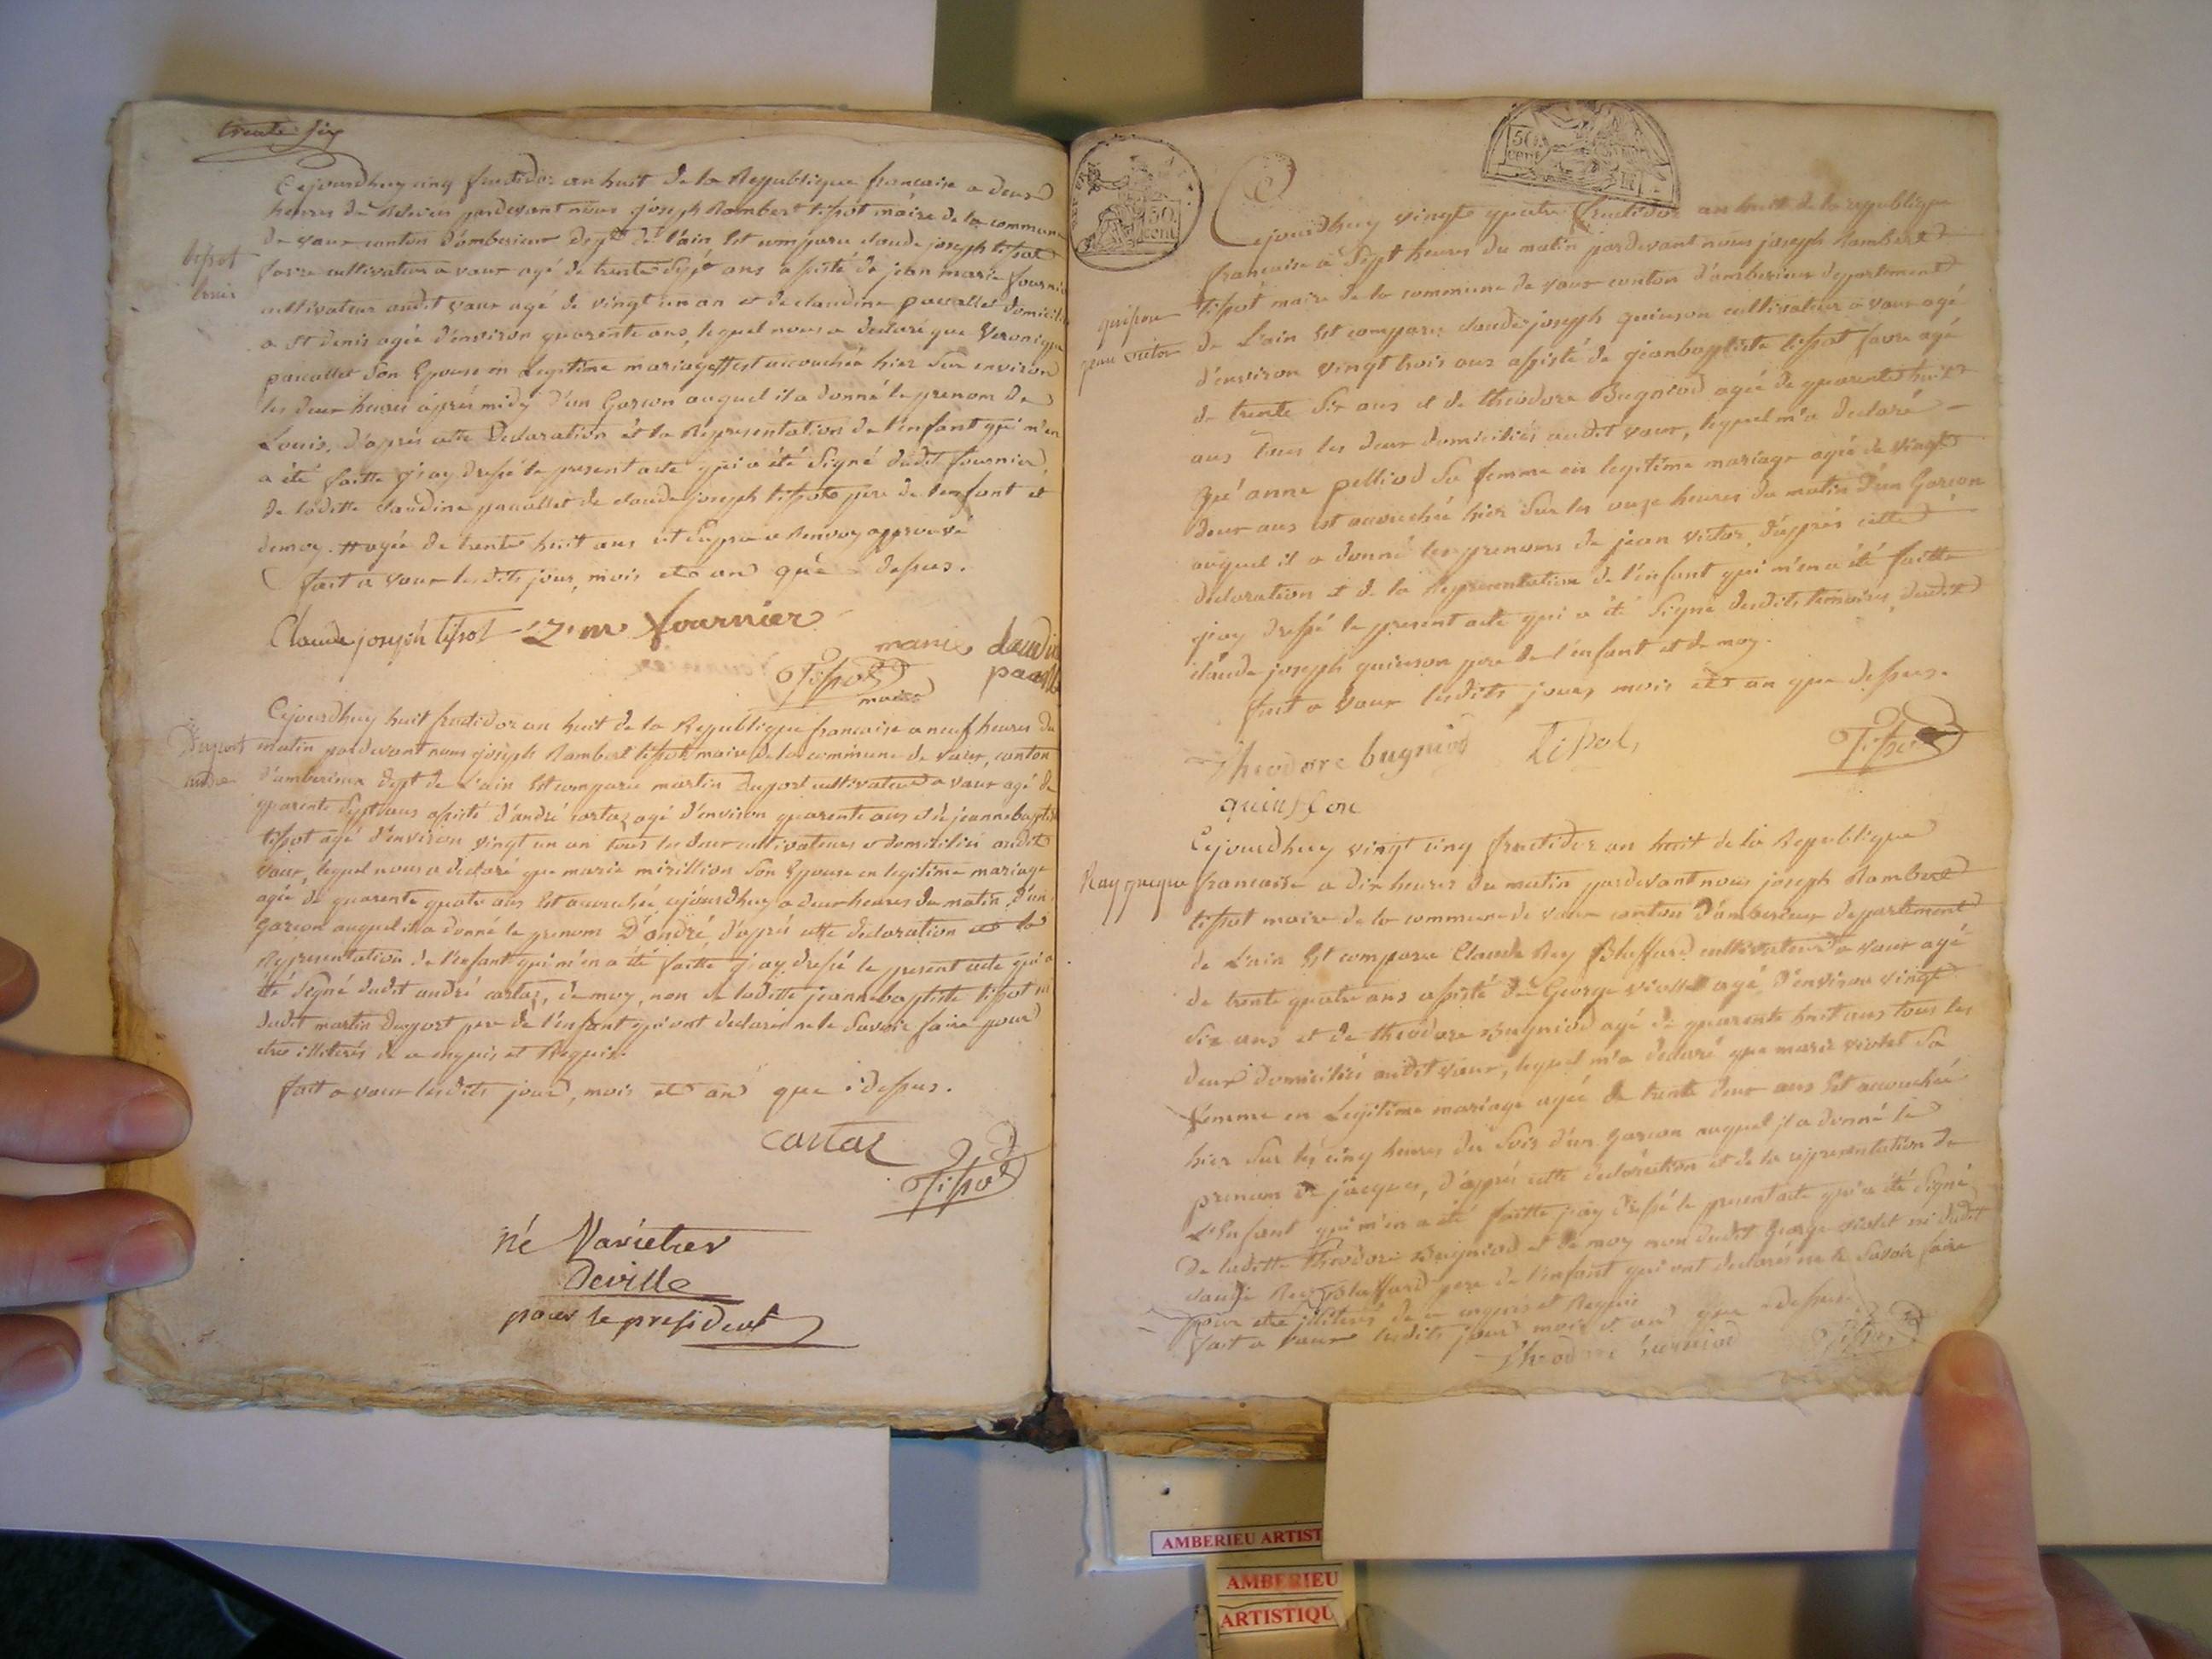 trente six
Cejourdhuy cinq fructidor an huit de la Republique francaise a deux
heures de Relevée pardevant nous joseph Rambert tissot maire de la commune
de vaux canton d'amberieux dept de l'ain Est comparu claude joseph tissot
favre cultivateur a vaux agé de trente sept ans assisté de jean marie fournier
cultivateur audit vaux agé de vingt un an et de claudine pacallet domicilié
a st denis agée d'environ quarente ans, lequel nous a declaré que Veronique
pacallet son Epouse en Legitime mariage # est accouchée hier sur environ
les deux heures après midy d'un Garcon auquel il a donné le prenom de
Louis, d'après cette Declaration et la Representation de l'enfant qui m'en
a été faitte j'ay dressé le present acte qui a été signé dudit fournier,
de laditte claudine pacallet de claude joseph tissot pere de l'enfant et
de moy. # agée de trente huit ans et Renvoy approuvé
fait a vaux lesdits jour, mois et an que dessus.
tissot
louis
Claude joseph tissot J m fournier
marie claudine
pacallet
Tissot
maire
Cejourdhuy huit fructidor an huit de la Republique francaise a neuf heures du
matin pardevant nous joseph Rambert tissot maire de la commune de vaux, canton
d'amberieux dept de L'ain Est comparu martin Duport cultivateur a vaux agé de
quarente sept ans assisté d'andré cartaz agé d'environ quarente ans et de jeanne baptiste
tissot agé d'environ vingt un an tous les deux cultivateurs et domiciliés audit
vaux, lequel nous a declaré que marie mirillion son Epouse en legitime mariage
agée de quarente quatre ans Est accouchée cejourdhuy a deux heures du matin d'un
Garcon auquel il a donné le prenom D'andré, d'après cette declaration et la
Representation de l'enfant qui m'en a été faitte j'ay dressé le present acte qui a
été signé dudit andré cartaz, de moy, non de laditte jeanne baptiste tissot ni
dudit martin Duport pere de l'enfant qui ont declarés ne le savoir faire pour
etre illiterés de ce enquis et Requis.
fait a vaux lesdits jour, mois et an que dessus.
Duport
andré
cartaz
Tissot
Né Varietur
Deville
pour le president
50
cent
50
cent
Cejourdhuy vingt quatre fructidor an huit de la republique
francaise a sept heures du matin pardevant nous joseph Rambert
tissot maire de la commune de vaux canton d'amberieux departement
de L'ain Est comparu claude joseph quinson cultivateur a vaux agé
d'environ vingt trois ans assisté de jean baptiste tissot favre agé
de trente six ans et de theodore Bugniod agée de quarente huit
ans tous les deux domiciliés audit vaux, lequel m'a declaré
qu'anne pelliod sa femme en legitime mariage agée de vingt
deux ans est accouchée hier sur les onze heures du matin d'un Garcon
auquel il a donné les prenoms de jean victor, d'après cette
declaration et de la Representation de l'enfant qui m'en a été faitte
j'ay dressé le present acte qui a été signé desdits temoins, dudit
claude joseph quinson pere de l'enfant et de moy.
fait a vaux lesdits jour, mois et an que dessus.
jean victor
Theodore bugniod Tissot
Tissot
quinsson
Cejourdhuy vingt cinq fructidor an huit de la Republique
francaise a dix heures du matin pardevant nous joseph Rambert
tissot maire de la commune de vaux canton d'amberieux departement
de L'ain Est comparu Claude Rey Blaffard cultivateur a vaux agé
de trente quatre ans assisté de George violet agé d'environ vingt
six ans et de theodore Bugniod agé de quarente huit ans tous les
deux domiciliés audit vaux, lequel m'a declaré que marie violet sa
femme en Legitime mariage agée de trente deux ans Est accouchée
hier sur les cinq heures du soir d'un garcon auquel il a donné le
prenom de jacques, d'après cette declaration et de la representation de
L'Enfant qui m'en a été faitte j'ay dressé le present acte qui a été signé
de laditte theodore Bugniod et de moy non dudit George violet ni dudit
claude Rey Blaffard pere de l'enfant qui ont declarés ne le savoir faire
pour etre illiterés de ce enquis et Requis
fait a vaux lesdits jour mois et an que dessus.
Theodore bugniod Tissot
AMBERIEU ARTIST
AMBERIEU
ARTISTIQU